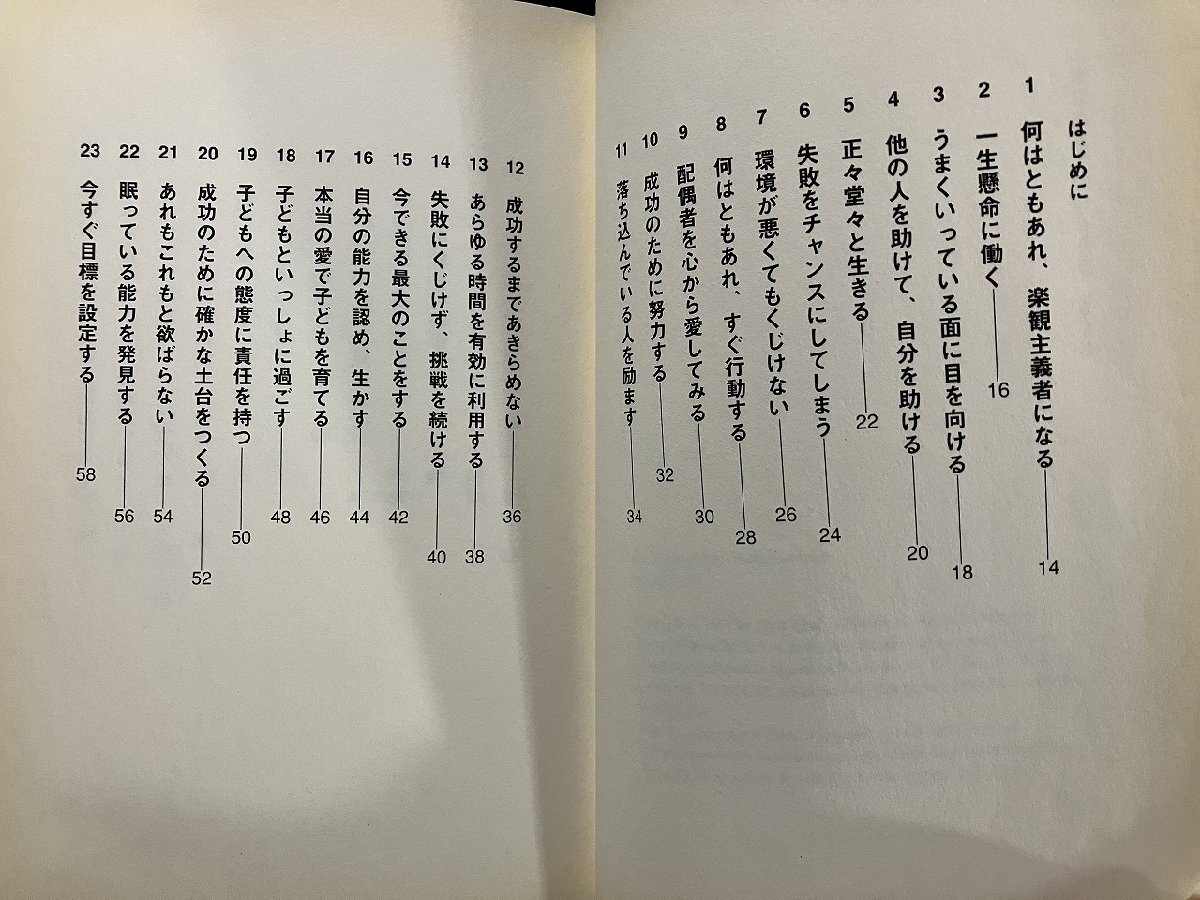 はじめに
1 何はともあれ、楽観主義者になる 14
2 一生懸命に働く 16
3 うまくいっている面に目を向ける 18
4 他の人を助けて、自分を助ける 20
5 正々堂々と生きる 22
6 失敗をチャンスにしてしまう 24
7 環境が悪くてもくじけない 26
8 何はともあれ、すぐ行動する 28
9 配偶者を心から愛してみる 30
10 成功のために努力する 32
11 落ち込んでいる人を励ます 34
12 成功するまであきらめない 36
13 あらゆる時間を有効に利用する 38
14 失敗にくじけず、挑戦を続ける 40
15 今できる最大のことをする 42
16 自分の能力を認め、生かす 44
17 本当の愛で子どもを育てる 46
18 子どもといっしょに過ごす 48
19 子どもへの態度に責任を持つ 50
20 成功のために確かな土台をつくる 52
21 あれもこれもと欲ばらない 54
22 眠っている能力を発見する 56
23 今すぐ目標を設定する 58